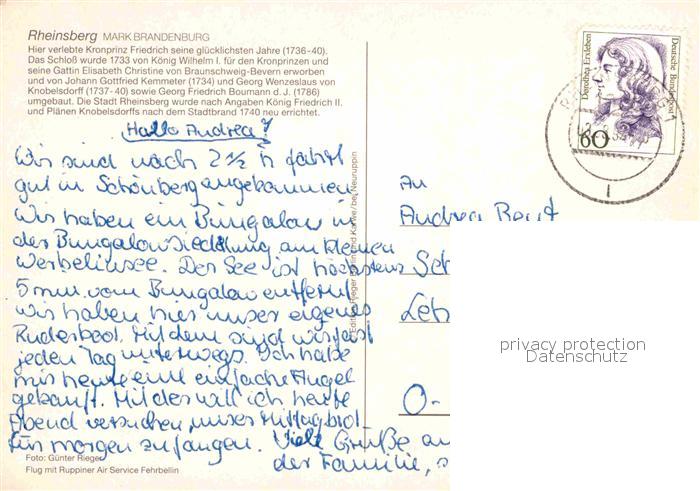 Rheinsberg MARK BRANDENBURG
Hier verlebte Kronprinz Friedrich seine glücklichsten Jahre (1736-40).
Das Schloß wurde 1733 von König Wilhelm I. für den Kronprinzen und
seine Gattin Elisabeth Christine von Braunschweig-Bevern erworben
und von Johann Gottfried Kemmeter (1734) und Georg Wenzeslaus von
Knobelsdorff (1737-40) sowie Georg Friedrich Boumann d. J. (1786)
umgebaut. Die Stadt Rheinsberg wurde nach Angaben König Friedrich II.
und Plänen Knobelsdorffs nach dem Stadtbrand 1740 neu errichtet.
Hallo Andrea!
Wir sind nach 2 1/2 h fahrt
gut in Schönberg angekommen
Wir haben ein Bungalow in
der Bungalowsiedlung am kleinen
Werbelinsee. Der See ist höchstens
5 min. vom Bungalow entfernt
wir haben hier unser eigenes
Ruderboot. Mit dem sind wir fast
jeden Tag unterwegs. Ich habe
mir heute eine einfache Angel
gekauft. Mit der will ich heute
Abend versuchen, unser Mittagbrot
für morgen zu fangen. Viele Grüße an
der Familie,
Foto: Günter Rieger
Flug mit Ruppiner Air Service Fehrbellin
Edition Rieger Berlin und Karwe/bei Neuruppin
Dorothea Erxleben
Deutsche Bundespost
60
An
Andrea
O-
privacy protection
Datenschutz